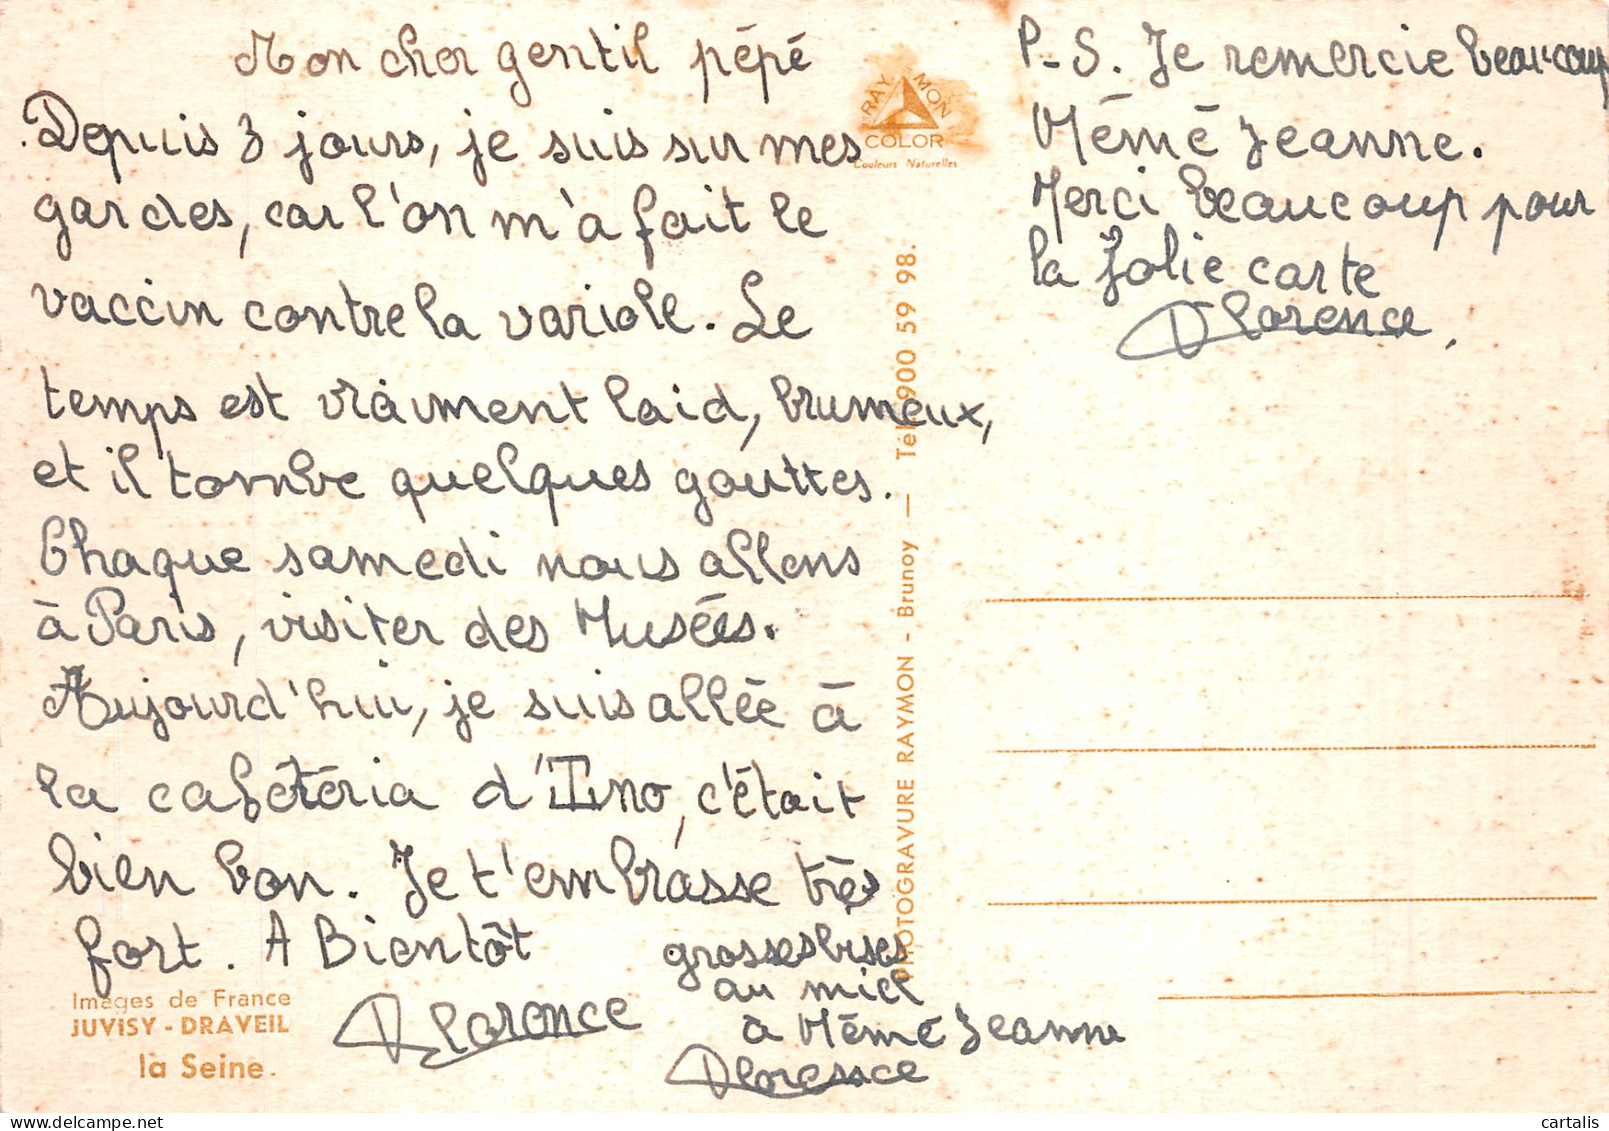 Mon cher gentil pépé
Depuis 3 jours, je suis sur mes
gardes, car l'on m'a fait le
vaccin contre la variole. Le
temps est vraiment laid, brumeux,
et il tombe quelques gouttes.
Chaque samedi nous allons
à Paris, visiter des Musées.
Aujourd'hui, je suis allée à
la cafétéria d'Inno, c'était
bien bon. Je t'embrasse très
fort. A Bientôt
Florence
grosses bises
au miel
à Mémé Jeanne
Florence
Images de France
JUVISY - DRAVEIL
la Seine.
RAYMON
COLOR
Couleurs Naturelles
PHOTOGRAVURE RAYMON - Brunoy — Tél. 900 59 98.
P-S. Je remercie beaucoup
Mémé Jeanne.
Merci beaucoup pour
la jolie carte
Florence,
cartalis